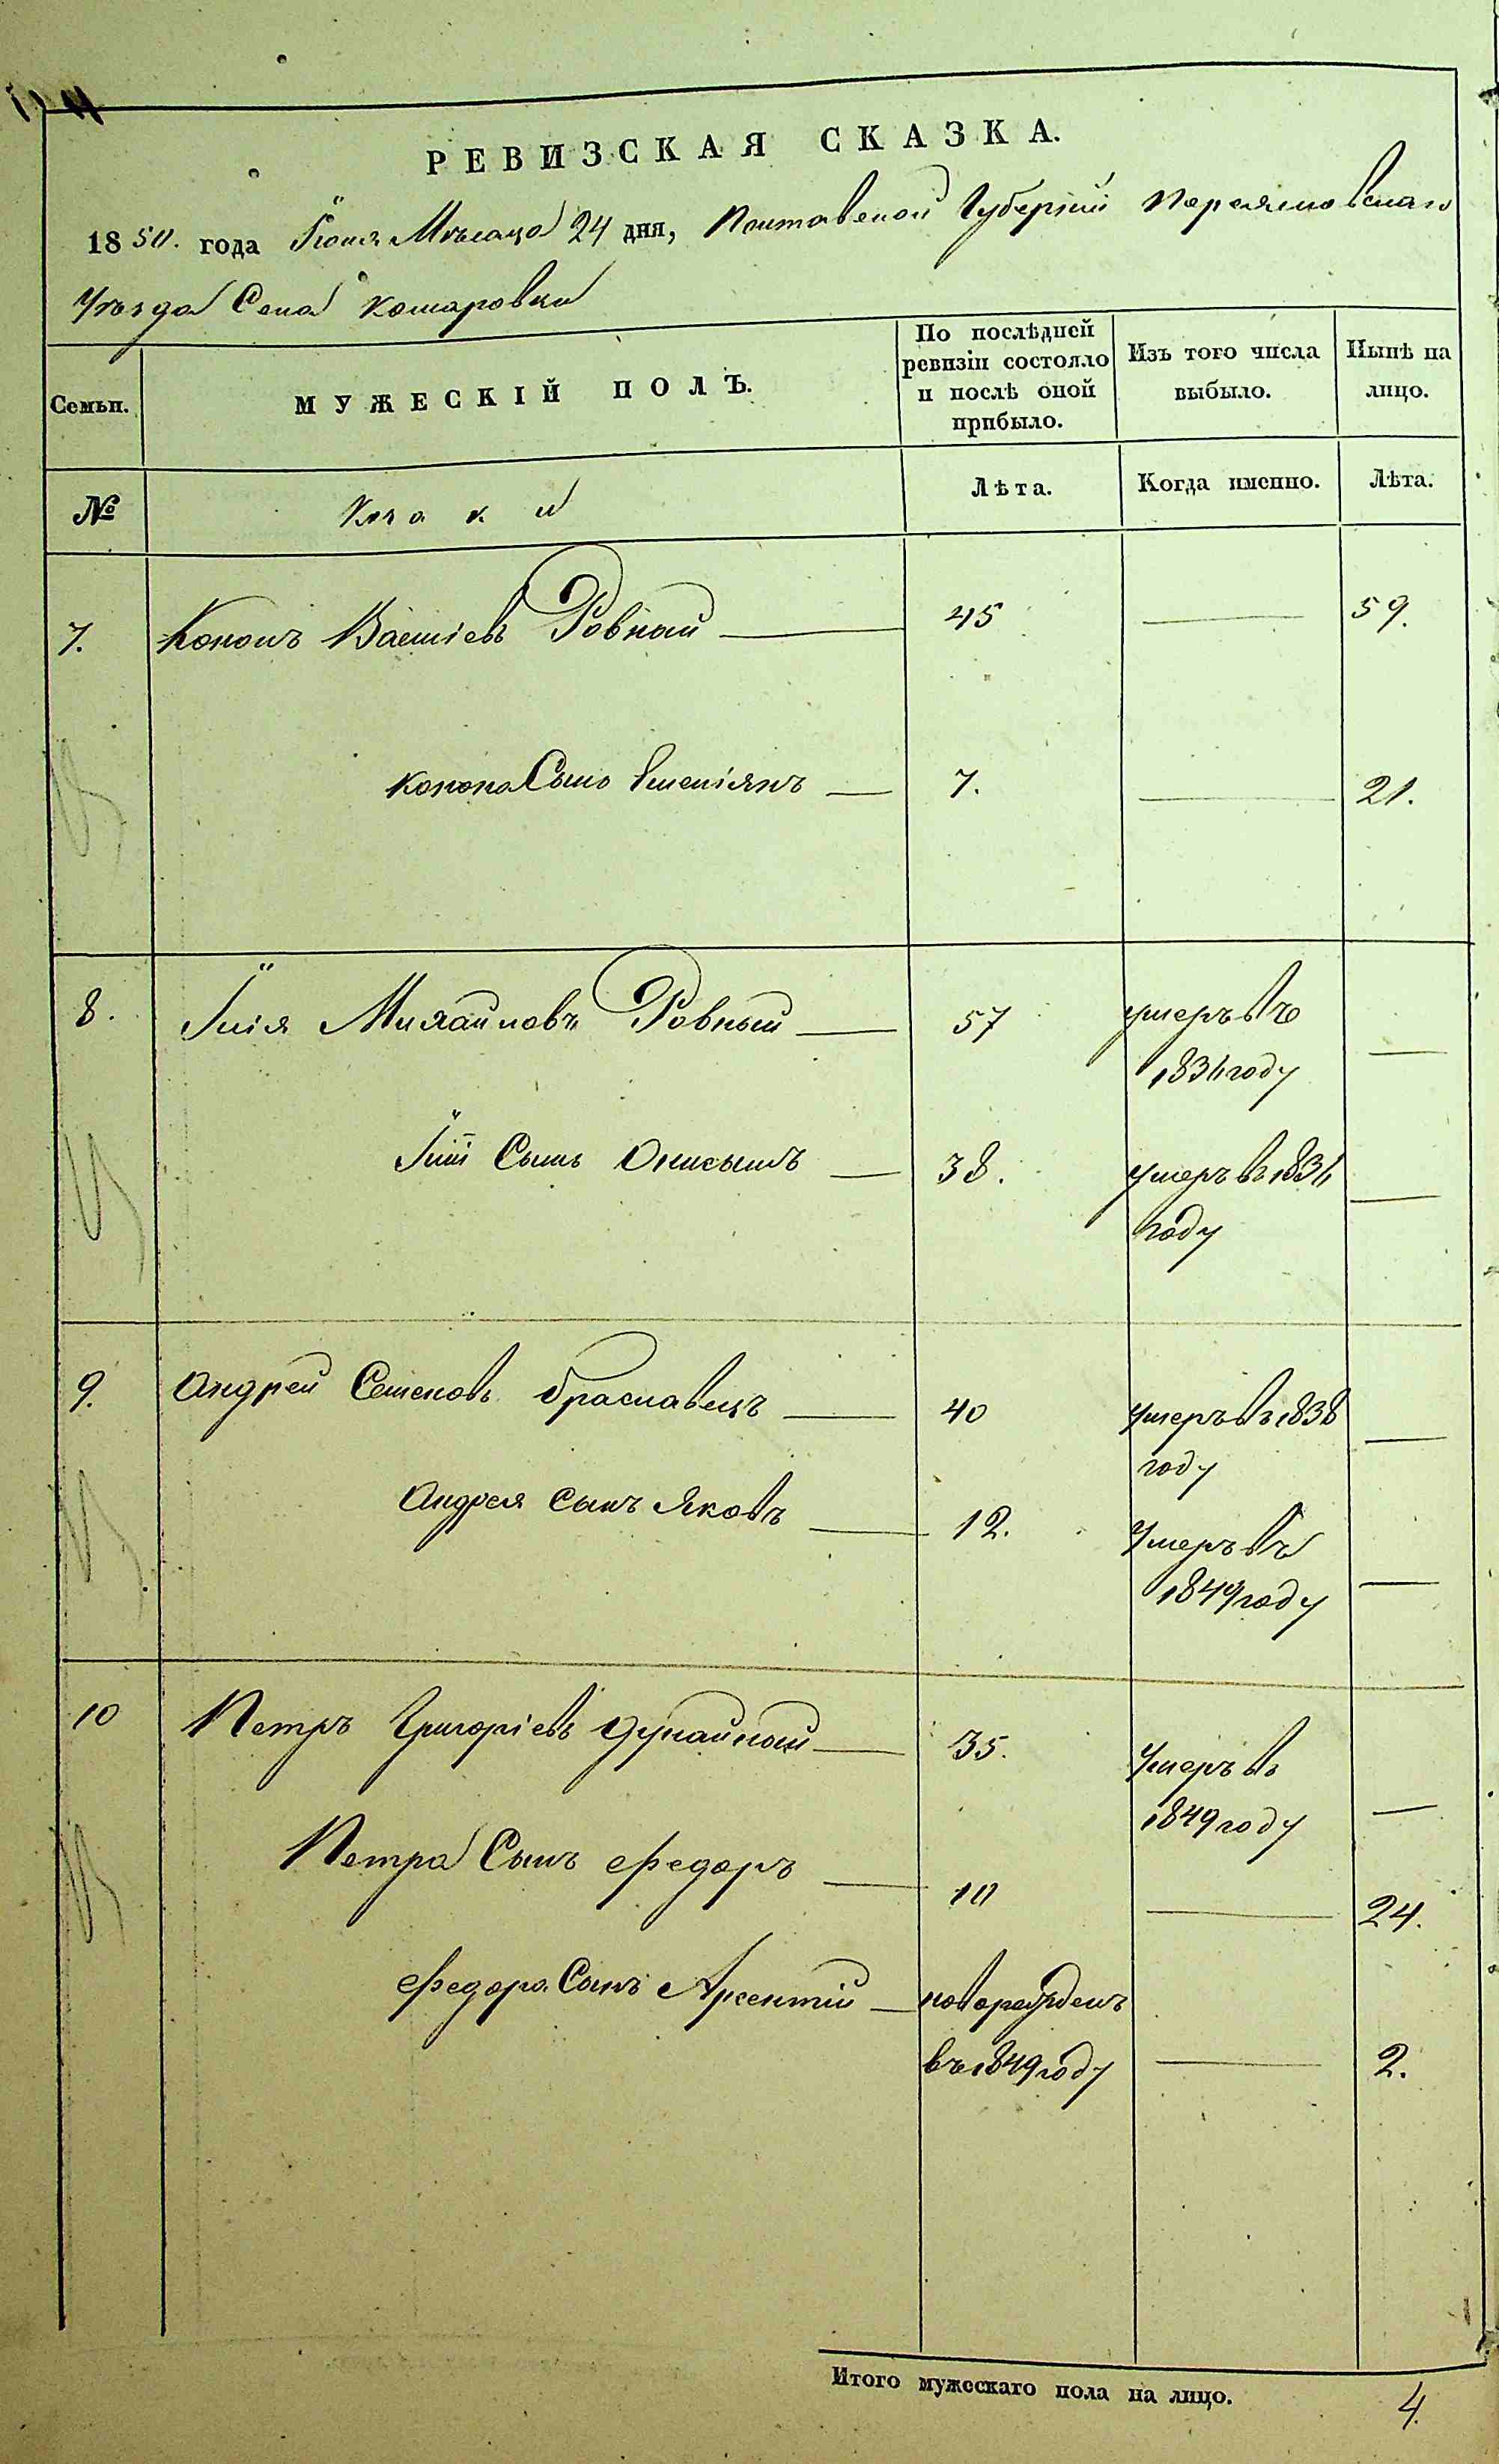 РЕВИЗСКАЯ СКАЗКА.
1850. года Іюня Мѣсяца 24 дня, Полтавской Губерніи Переяславскаго
Уѣзда Села Комаровки
Семьи.
МУЖЕСКІЙ ПОЛЪ.
По послѣдней ревизіи состояло и послѣ оной прибыло.
Изъ того числа выбыло.
Нынѣ на лицо.
№
Козаки
Лѣта.
Когда именно.
Лѣта.
7. Кононъ Василіевъ Ровный 45 59.
Конона Сынъ 7. 21.
8. Ілія Михаиловъ Ровный 57 умеръ въ
1834 году
Іліи Сынъ Онисимъ 38. умеръ въ 1834
году
9. Андрей Семеновъ Браславецъ 40 умеръ въ 1838
году
Андрея Сынъ Яковъ 12. Умеръ въ
1849 году
10 Петръ Григоріевъ Дунайный 35. Умеръ въ
1849 году
Петра Сынъ Федоръ 10 24.
Федора Сынъ Арсентій новорожденъ
въ 1849 году 2.
Итого мужескаго пола на лицо. 4.